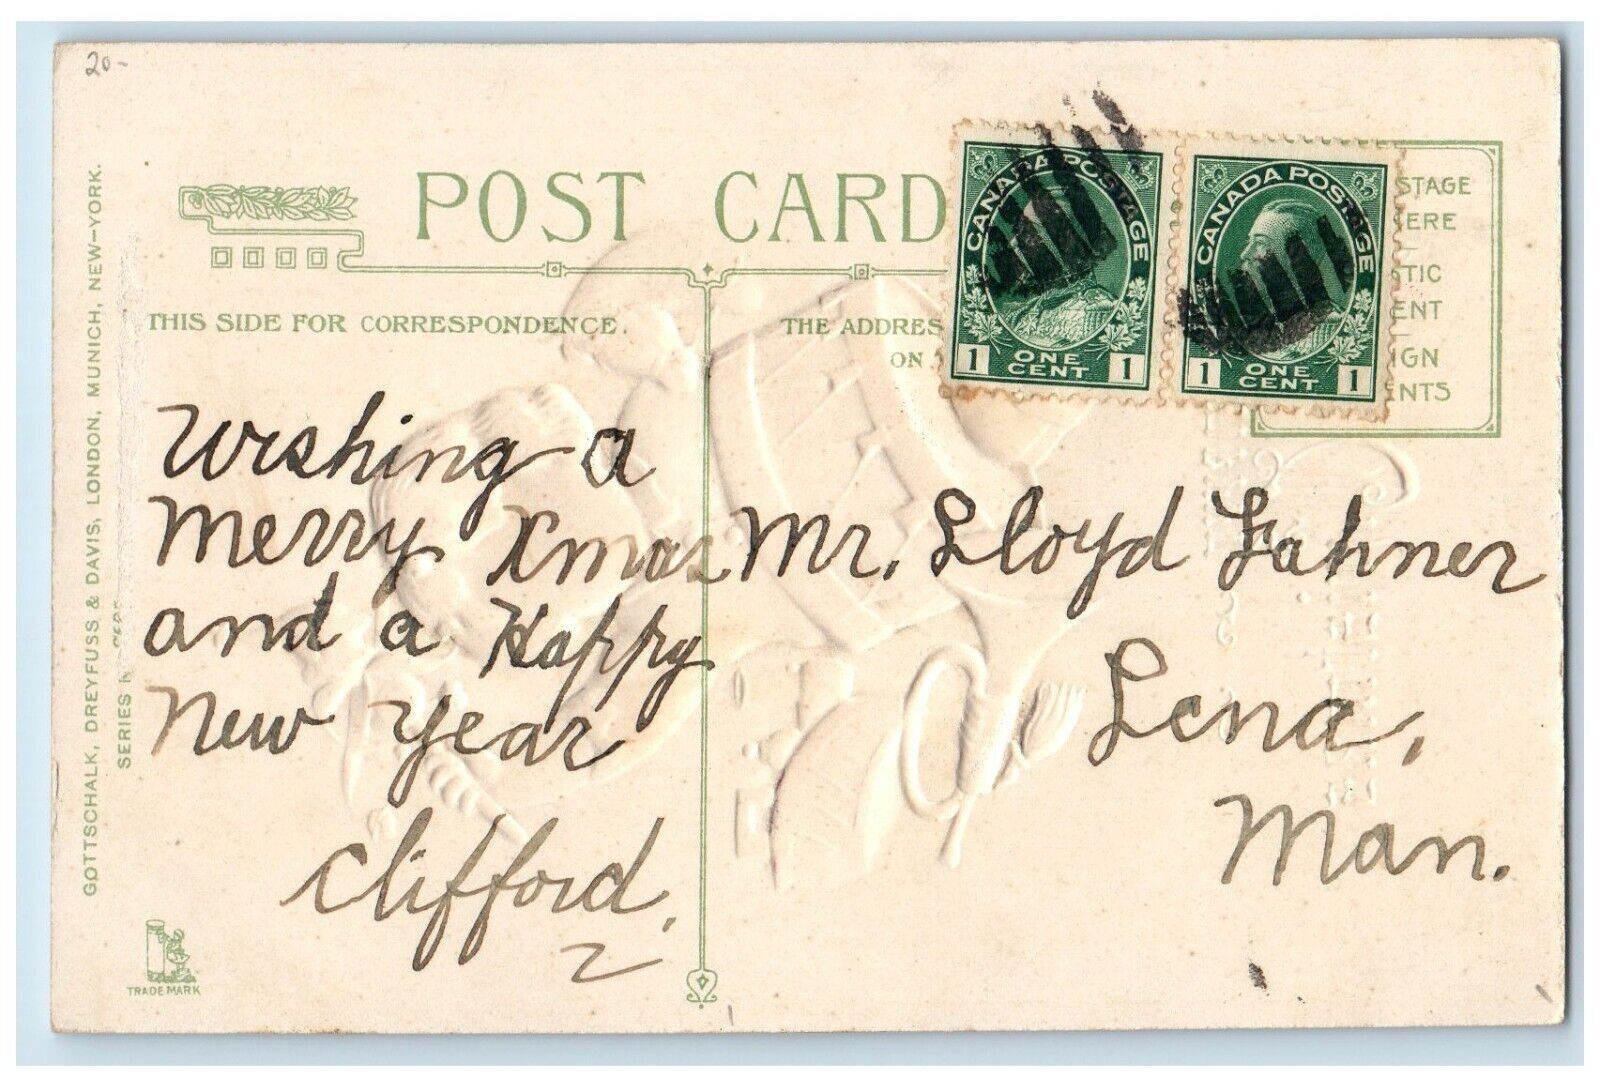 20-
POST CARD
THIS SIDE FOR CORRESPONDENCE.
THE ADDRES
ON
CANADA POSTAGE
1 ONE CENT 1
CANADA POSTAGE
1 ONE CENT 1
STAGE
ERE
STIC
ENT
IGN
ENTS
Wishing a
Merry Xmas
and a Happy
New Year
Clifford.
Mr. Lloyd Fahner
Lena,
Man.
GOTTSCHALK, DREYFUSS & DAVIS, LONDON, MUNICH, NEW-YORK.
SERIES
TRADE MARK